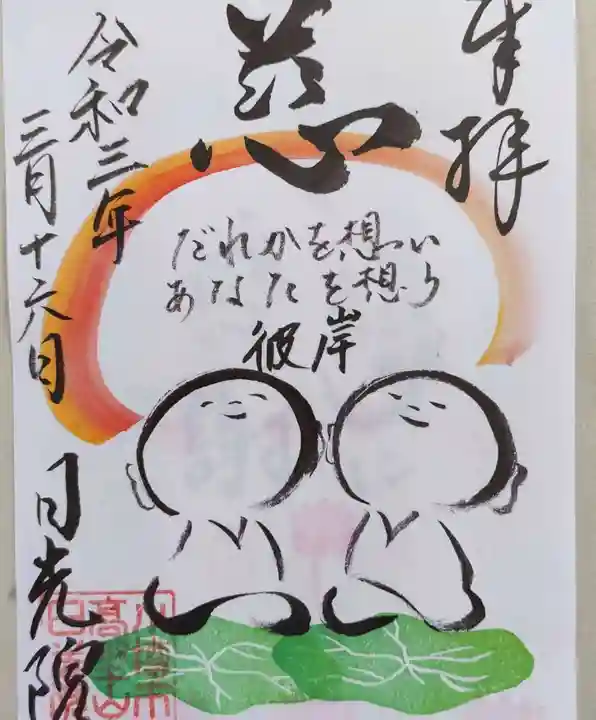 奉拝
慈
だれかを想い
あなたを想う
彼岸
令和三年
三月十六日
日光院